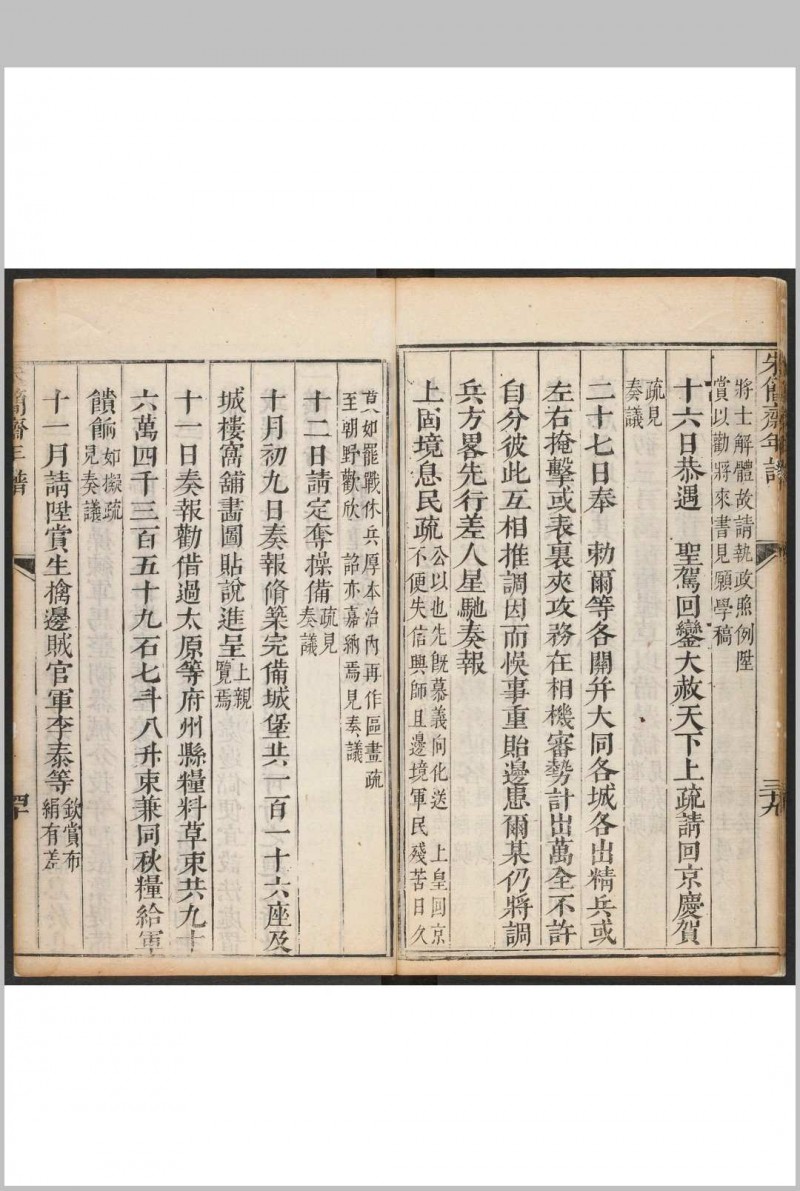 朱簡齋年譜
三九
將士解體故請執政照例陞
賞以勸將來書見願學稿
十六日恭遇　聖駕回鑾大赦天下上疏請回京慶賀
疏見
奏議
二十七日奉　勑爾等各關并大同各城各出精兵或
左右掩擊或表裏夾攻務在相機審勢計出萬全不許
自分彼此互相推調因而悞事重貽邊患爾某仍將調
兵方畧先行差人星馳奏報
上固境息民疏
公以也先既慕義向化送　上皇回京
不便失信興師且邊境軍民殘苦日久
莫如罷戰休兵厚本治內再作區畫疏
至朝野歡欣　詔亦嘉納焉見奏議
十二日請定奪操備
疏見
奏議
十月初九日奏報脩築完備城堡共一百一十六座及
城樓窩舖畵圖貼說進呈
上親
覽焉
十一日奏報勸借過太原等府州縣糧料草束共九十
六萬四千三百五十九石七斗八升束兼同秋糧給軍
饋餉
如擬疏
見奏議
十一月請陞賞生擒邊賊官軍李泰等
欽賞布
絹有差
簡齋年譜
四十